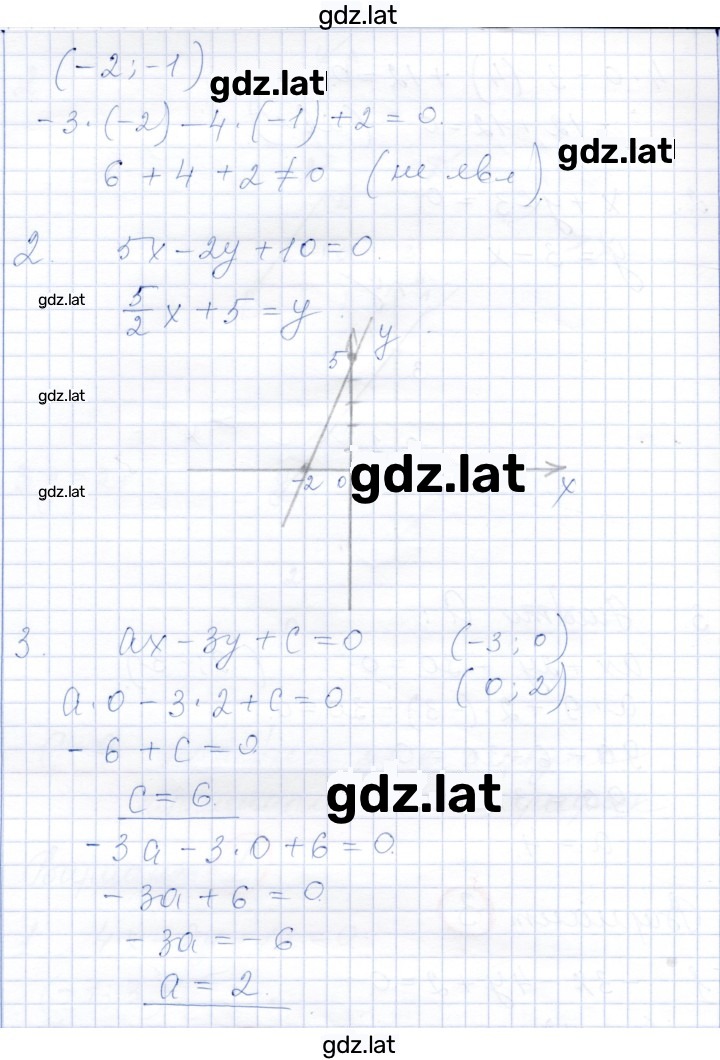 gdz.lat
(-2; -1)
gdz.lat
-3·(-2) - 4·(-1) + 2 = 0.
gdz.lat
6 + 4 + 2 ≠ 0 (не явл).
2. 5x - 2y + 10 = 0.
gdz.lat
5/2 x + 5 = y
y
5
gdz.lat
gdz.lat
-2 0
x
gdz.lat
3. ax - 3y + c = 0 (-3; 0)
(0; 2)
a·0 - 3·2 + c = 0
- 6 + c = 0
c = 6.
gdz.lat
-3a - 3·0 + 6 = 0.
- 3a + 6 = 0
- 3a = - 6
a = 2.
gdz.lat